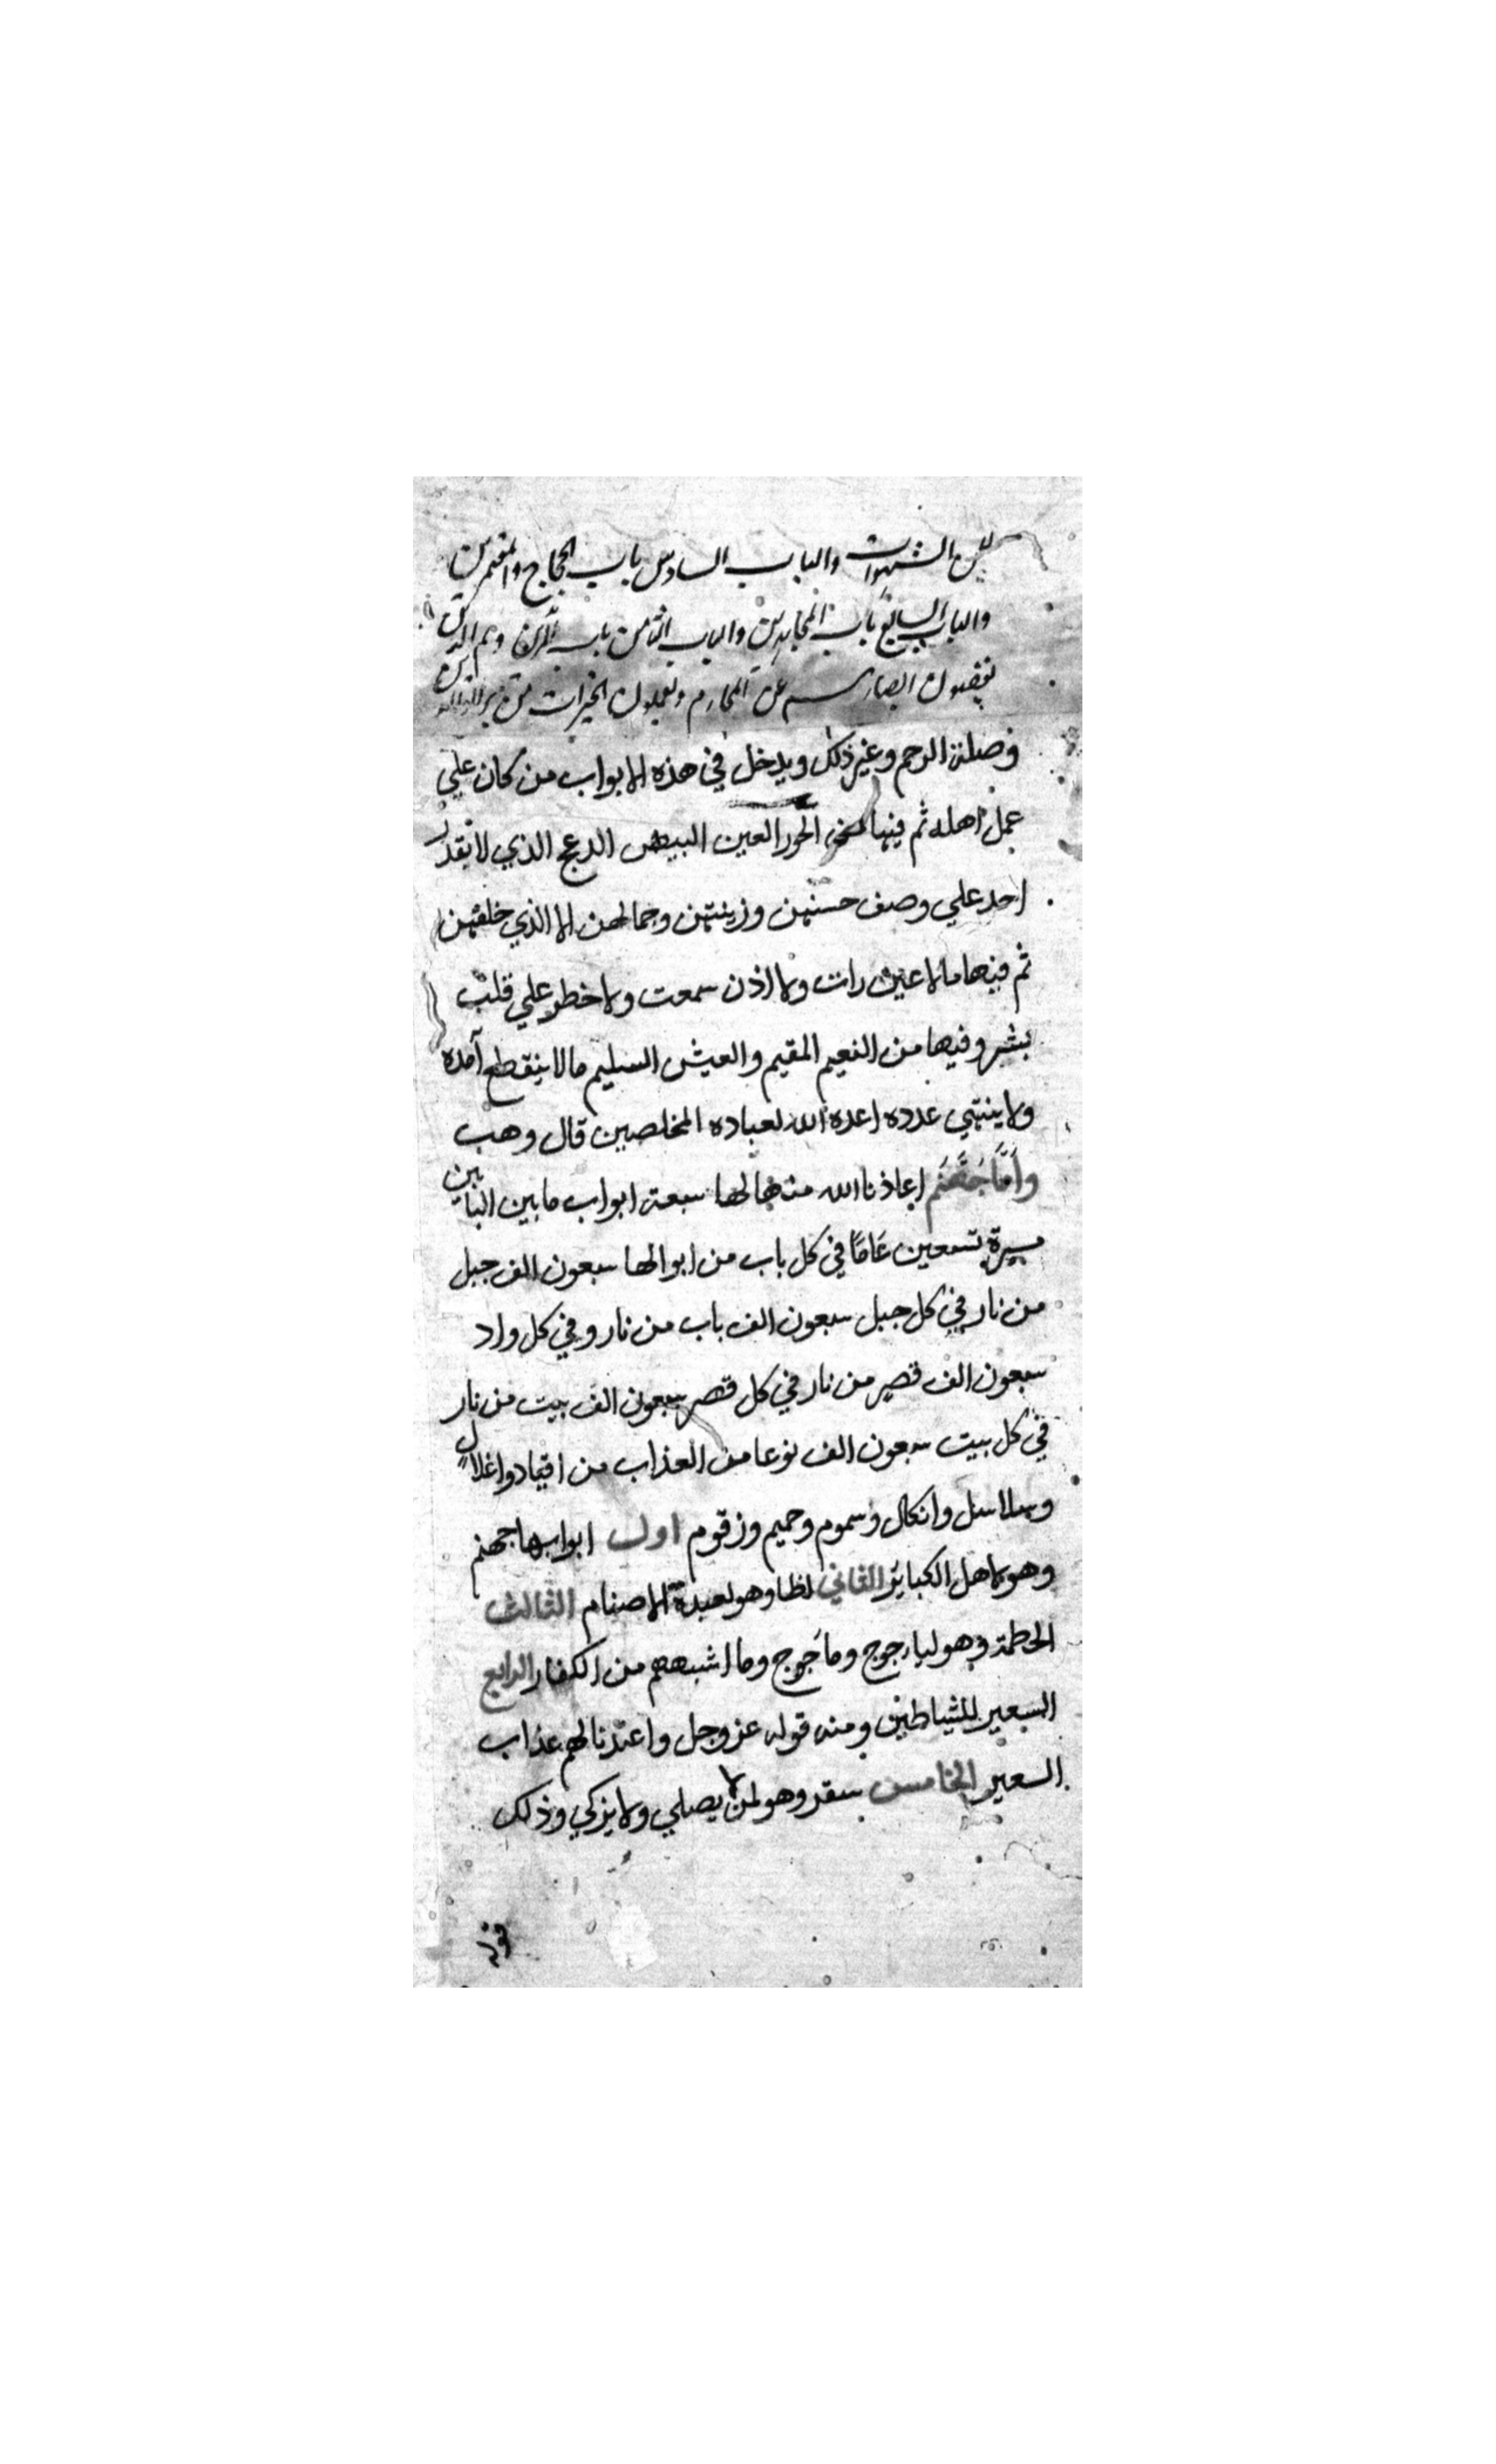 عن الشهوات والباب السادس باب الحجاج والمعتمرين
والباب السابع باب المجاهدين والباب الثامن باب وهم الذين
يغضون ابصارهم عن المحارم ويعملون الخيرات من بر الوالدين
وصلة الرحم وغير ذلك ويدخل في هذه الابواب من كان علي
عمل اهله ثم فيها الحور العين البيض الدعج الذي لا يقدر
احد علي وصف حسنهن وزينتهن وجمالهن الا الذي خلقهن
ثم فيها مالا عين رات ولا اذن سمعت ولا خطر علي قلب
بشر وفيها من النعيم المقيم والعيش السليم مالا ينقطع آمده
ولا ينتهي عدده اعده الله لعباده المخلصين قال وهب
وَاَمَّا جَهَنَّم اعاذنا الله منها لها سبعة ابواب ما بين البابين
مسيرة تسعين عَامًا في كل باب من ابوالها سبعون الف جبل
من نار في كل جبل سبعون الف باب من نار وفي كل واد
سبعون الف قصر من نار في كل قصر سبعون الف بيت من نار
في كل بيت سبعون الف نوعا من العذاب من اقياد واغلال
وسلاسل وانكال وسموم وحميم وزقوم اول ابوابها جهنم
وهو لاهل الكبائر الثاني لظا وهو لعبدة الاصنام الثالث
الحطمة وهو لياجوج وماجوج وما اشبههم من الكفار الرابع
السعير للشياطين ومنه قوله عز وجل واعتدنا لهم عذاب
السعير الخامس سقر وهو لمن لا يصلي ولا يزكي وذلك
قوله